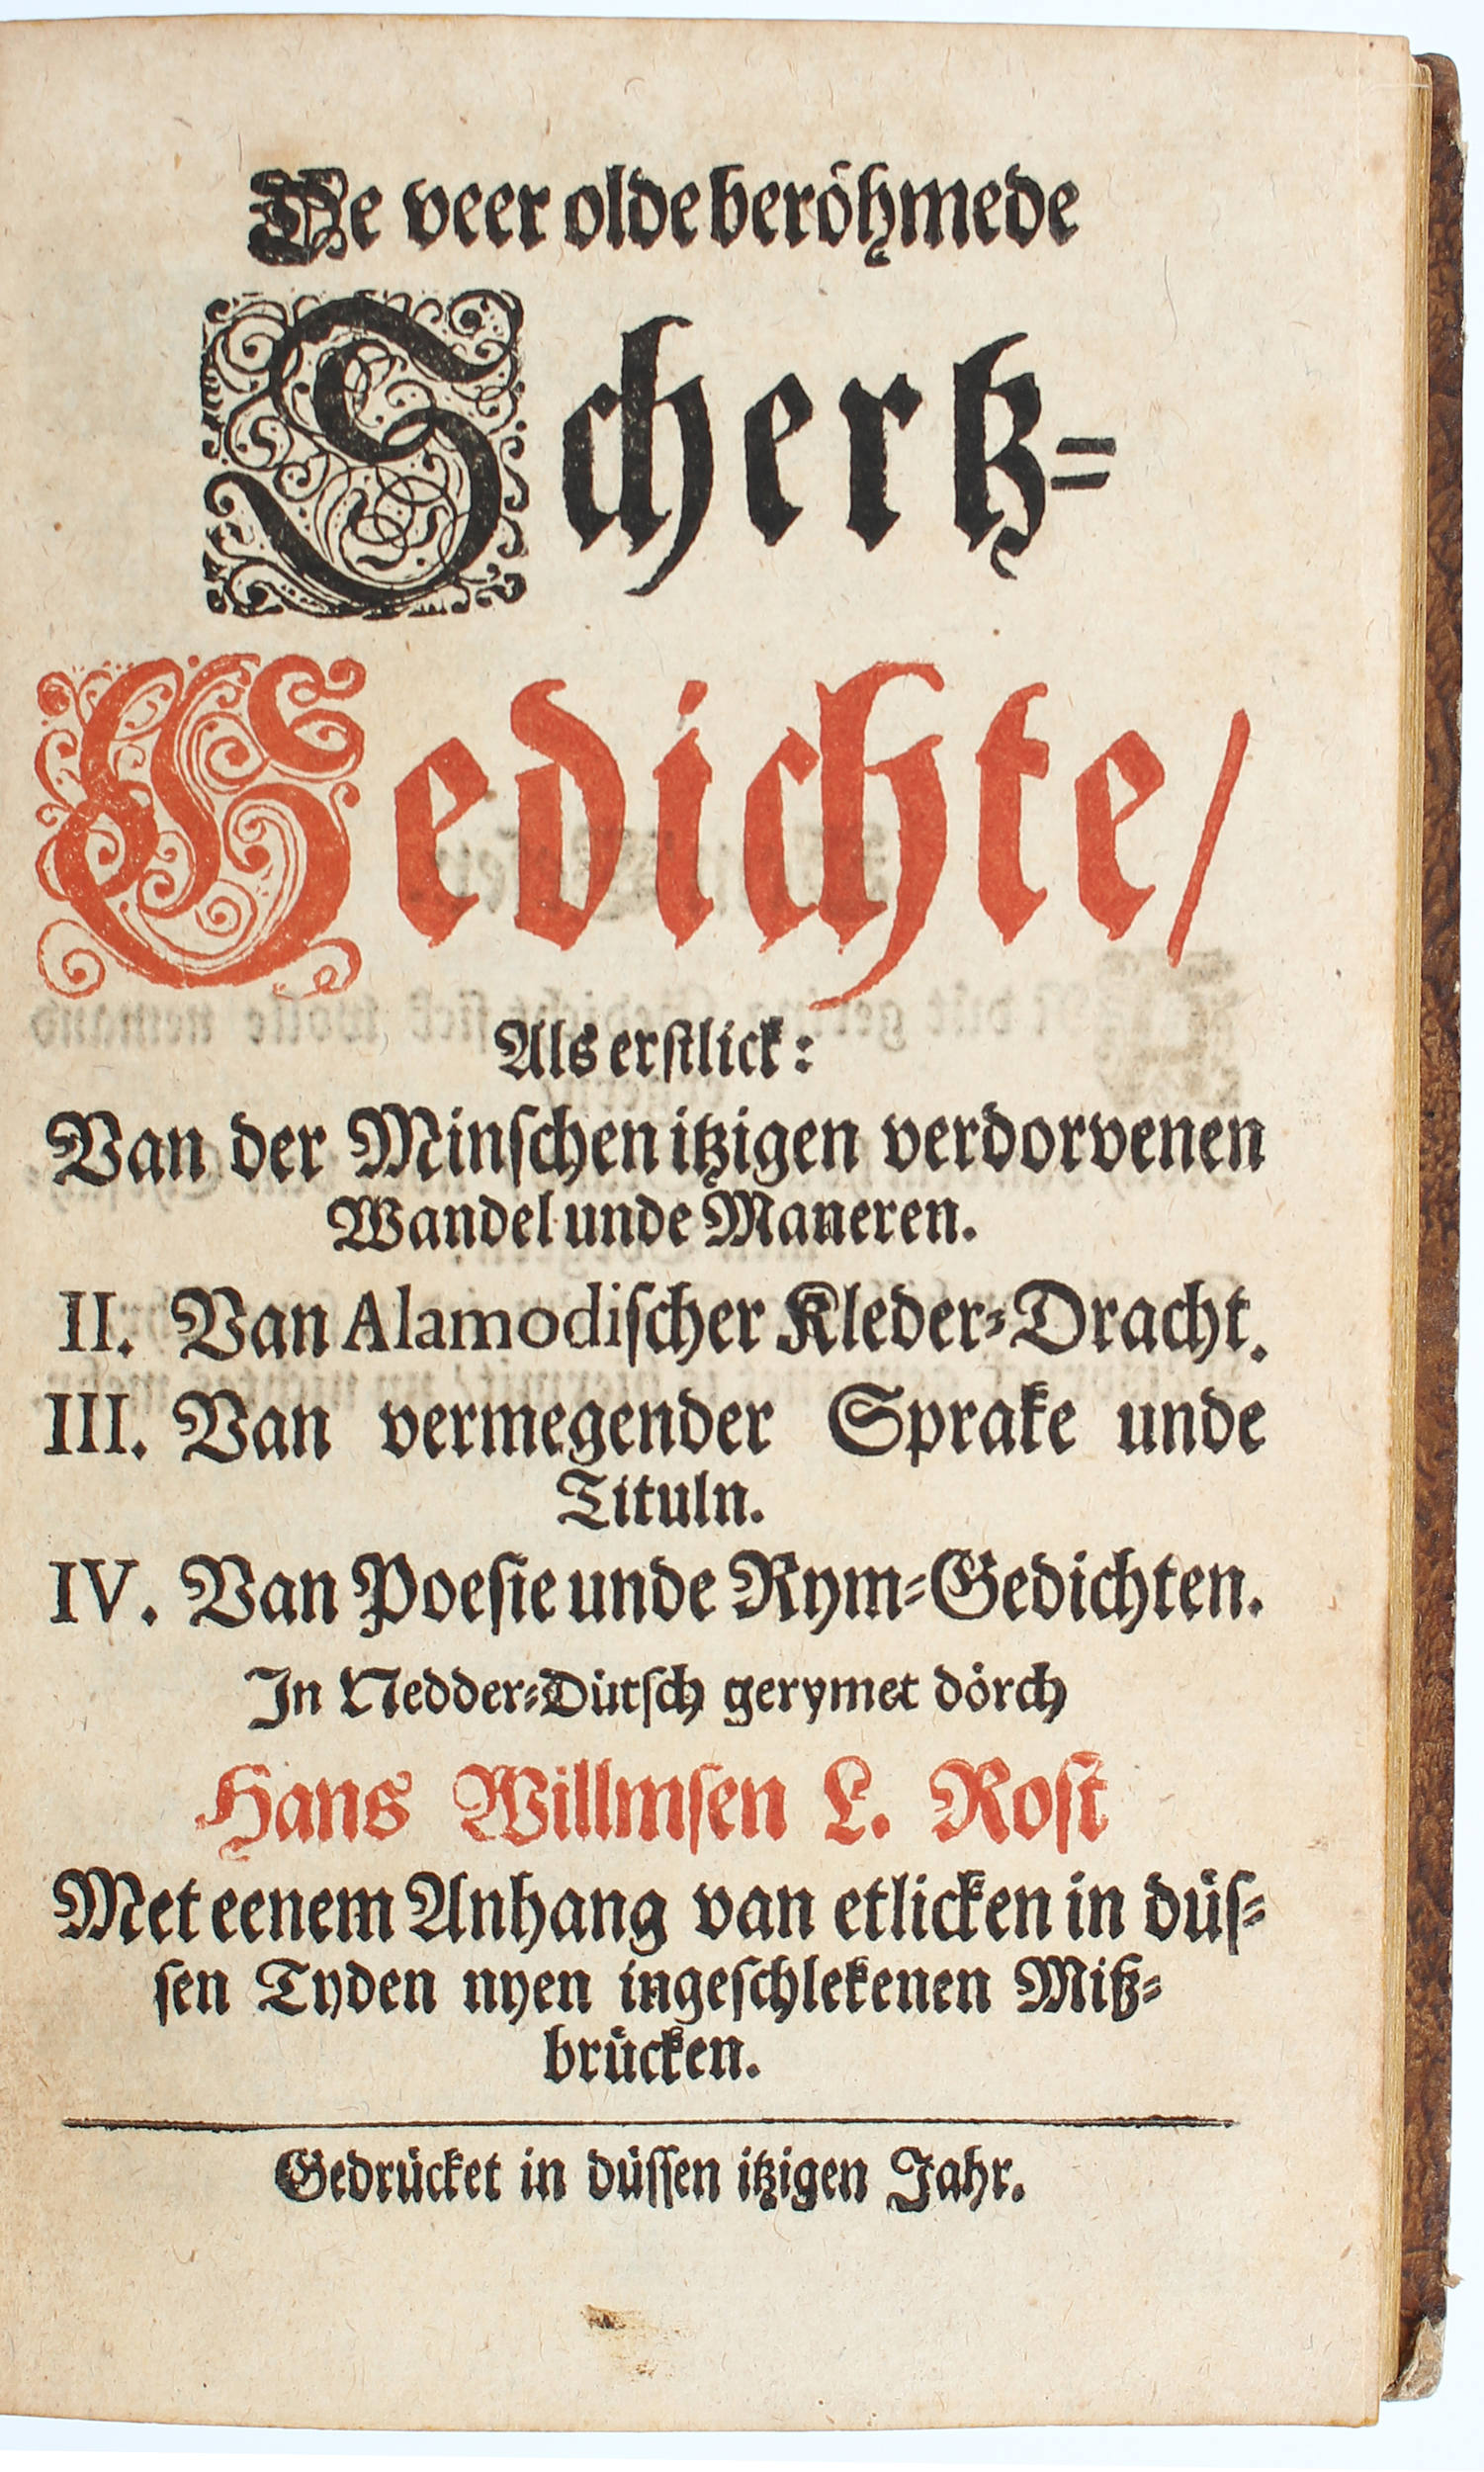 De veer olde beröhmede
Schertz=
Gedichte/
Als erstlick:
Van der Minschen itzigen verdorvenen
Wandel unde Maneren.
II. Van Alamodischer Kleder=Dracht.
III. Van vermegender Sprake unde
Tituln.
IV. Van Poesie unde Rym=Gedichten.
In Nedder=Dütsch gerymet dörch
Hans Willmsen L. Rost
Met eenem Anhang van etlicken in düs=
sen Tyden nyen ingeschlekenen Miß=
brücken.
Gedrücket in düssen itzigen Jahr.